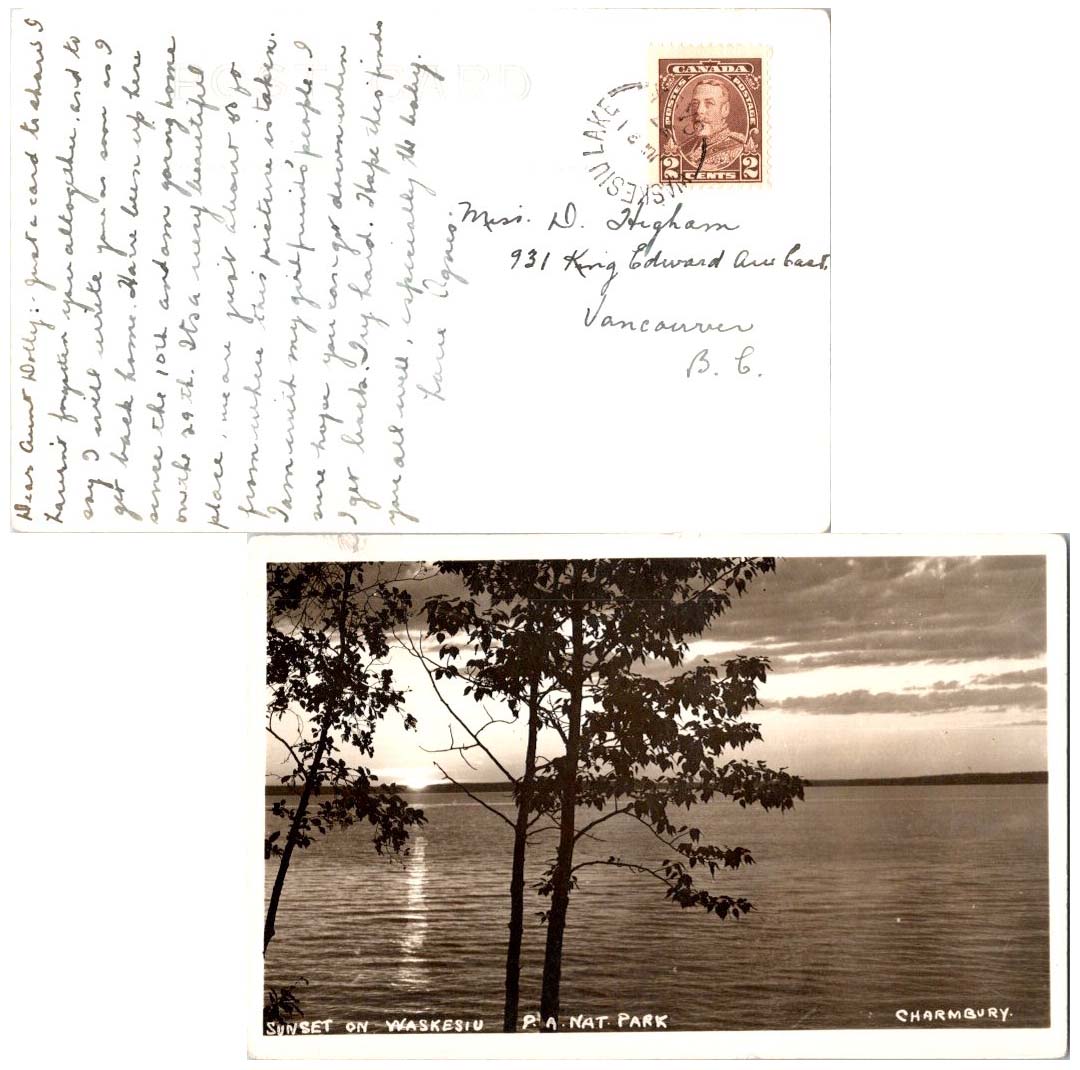 POST CARD
Dear Aunt Dolly:- Just a card to show I
haven't forgotten you altogether, and to
say I will write you as soon as I
get back home. Have been up here
since the 10th and am going home
on the 29th. It's a very beautiful
place, we are just about so far
from where this picture is taken.
I am with my girl friends' people. I
sure hope you can get down when
I get back. Try hard. Hope this finds
you all well, especially the baby.
Love Agnes.
CANADA
POSTES POSTAGE
2 CENTS 2
WASKESIU LAKE
Miss. D. Higham
931 King Edward Ave East.
Vancouver
B. C.
SUNSET ON WASKESIU P.A. NAT. PARK
CHARMBURY.